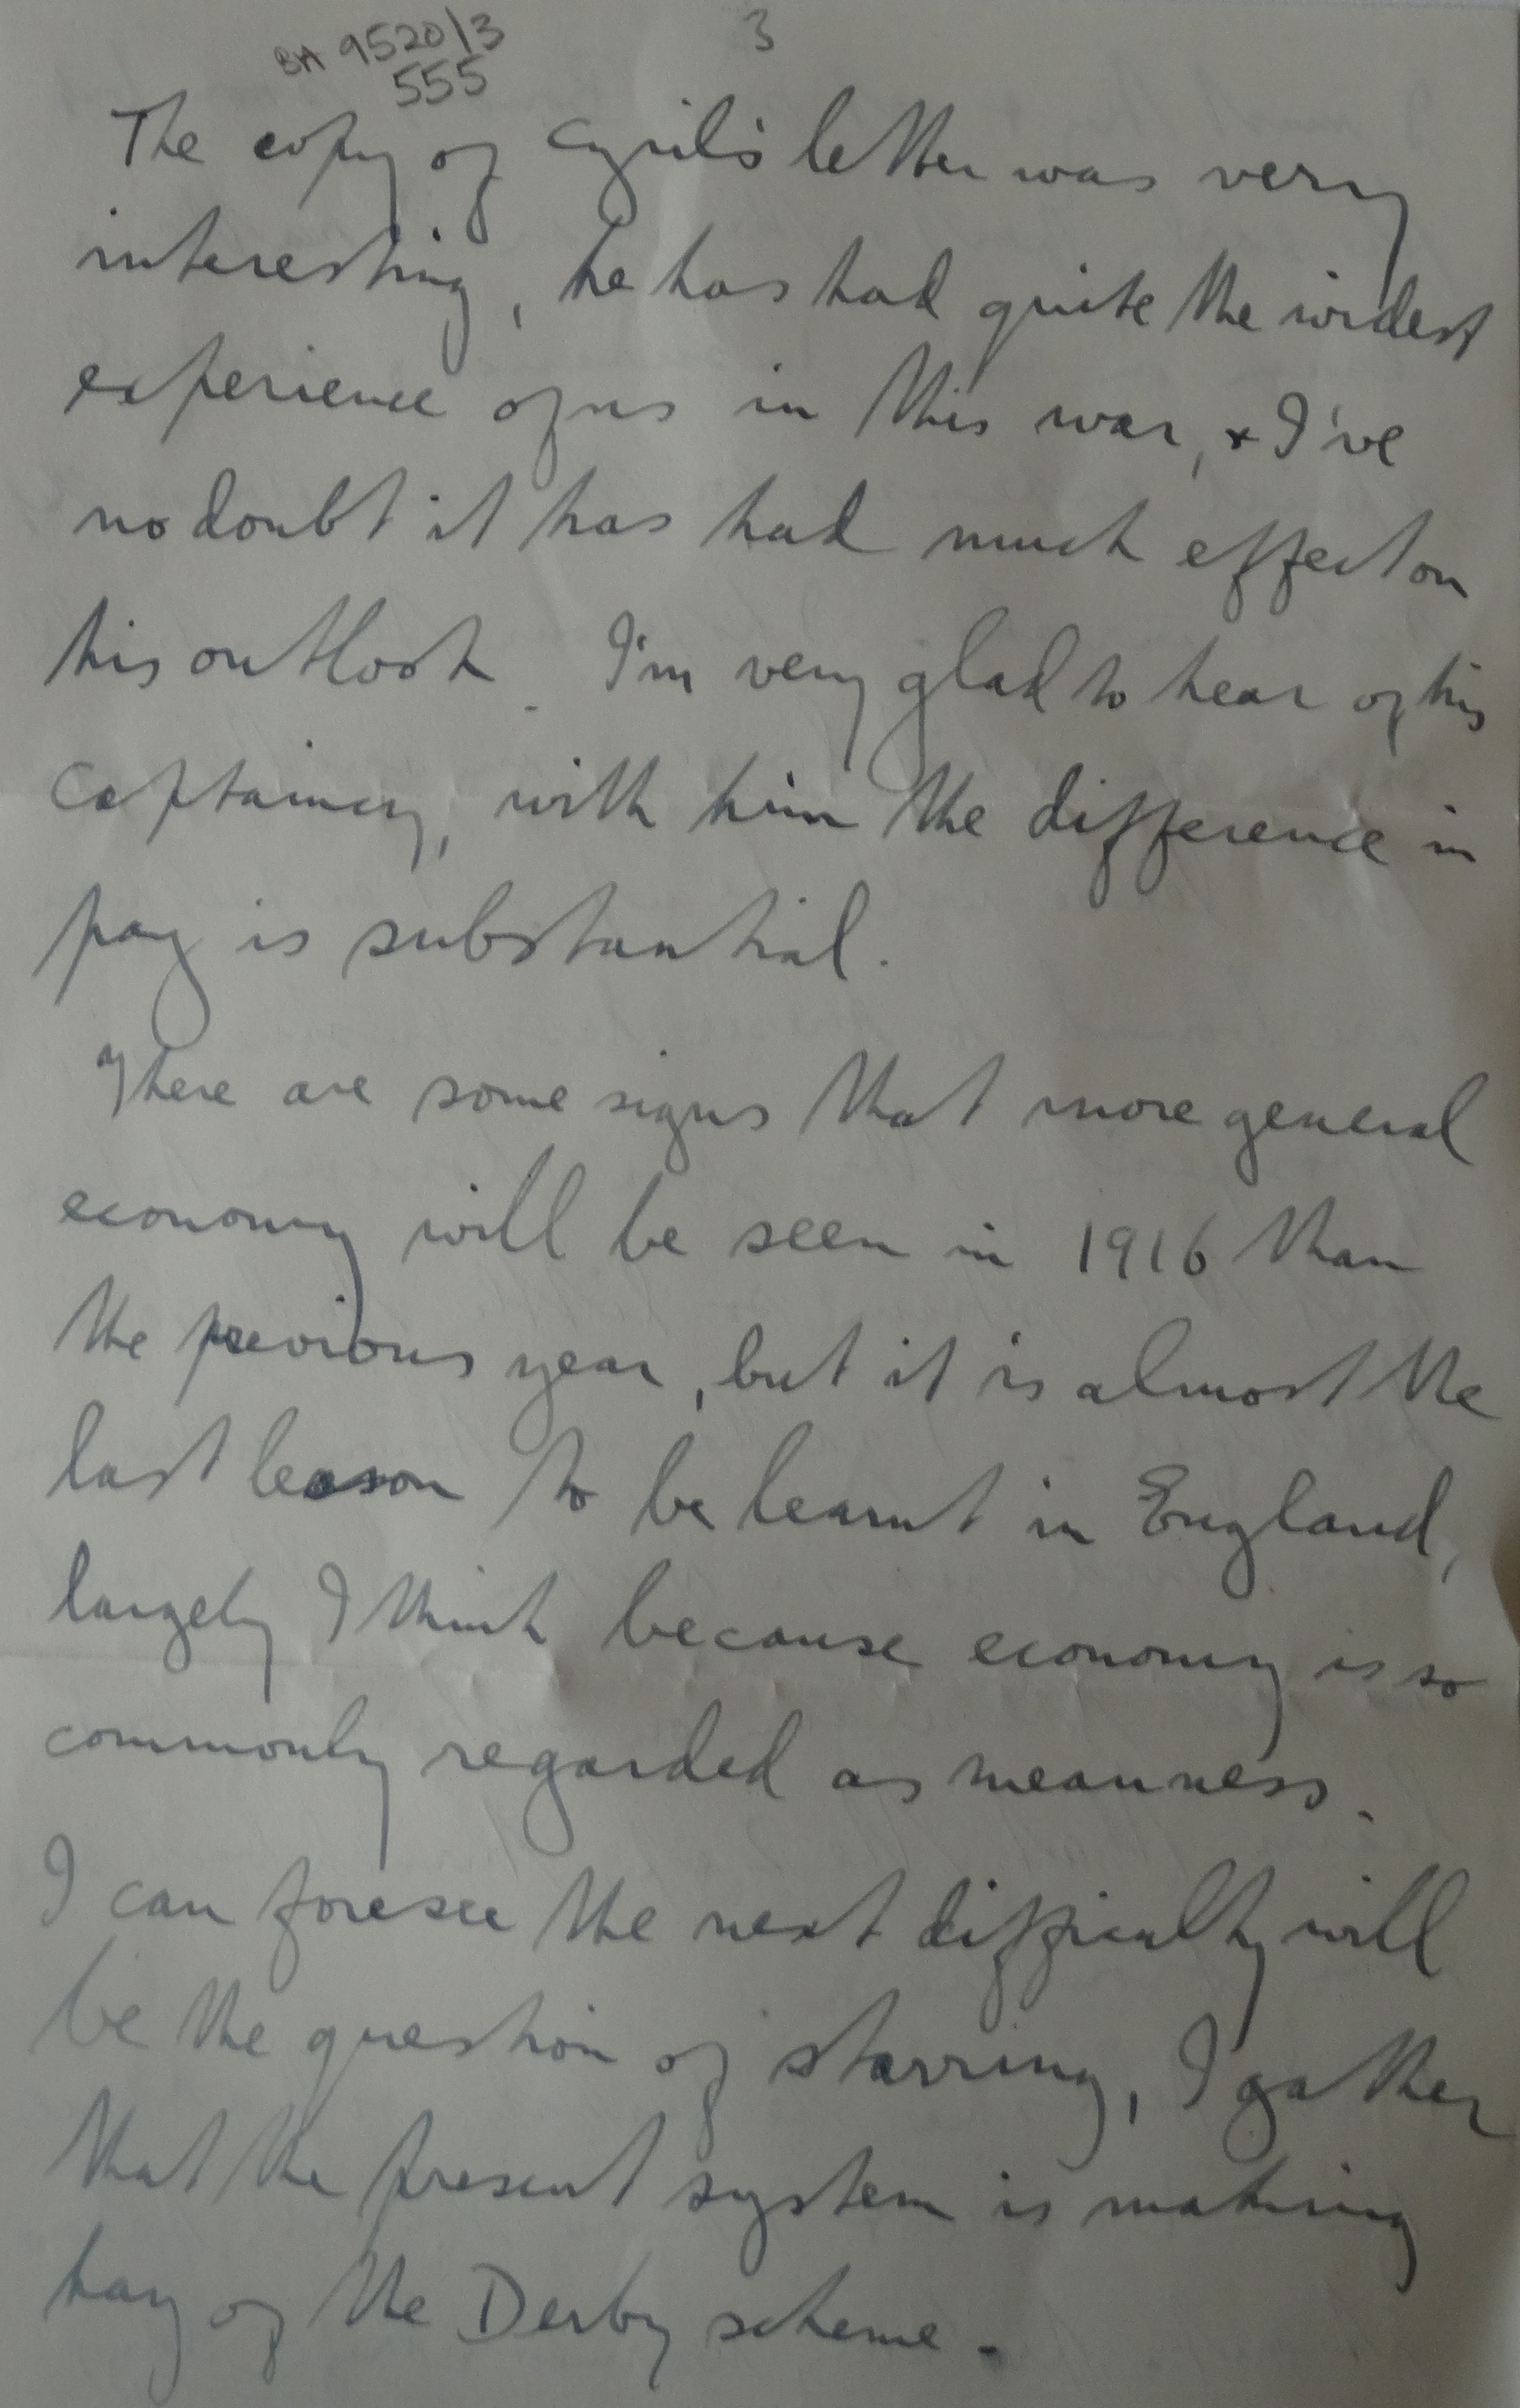 BA 9520/3
3
555
The copy of Cyril's letter was very
interesting, he has had quite the widest
experience of us in this war, & I've
no doubt it has had much effect on
his outlook. I'm very glad to hear of his
captaincy, with him the difference in
pay is substantial.
There are some signs that more general
economy will be seen in 1916 than
the previous year, but it is almost the
last lesson to be learnt in England,
largely I think because economy is so
commonly regarded as meanness.
I can foresee the next difficulty will
be the question of starring, I gather
that the present system is making
hay of the Derby scheme.